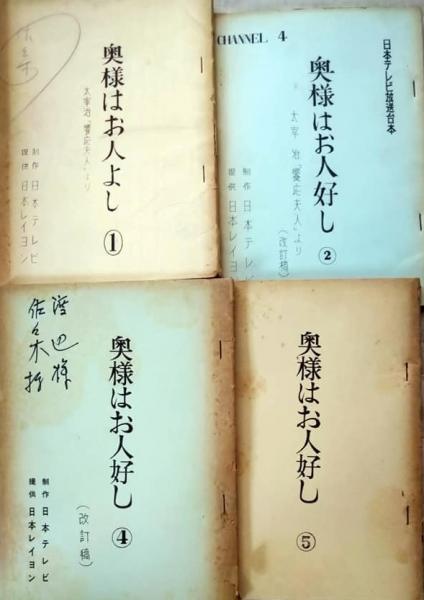 奥様はお人よし
太宰治「饗応夫人」より
①
制作 日本テレビ
提供 日本レイヨン
CHANNEL 4
日本テレビ放送台本
奥様はお人好し
太宰治「饗応夫人」より
(改訂稿)
②
制作 日本テレビ
提供 日本レイヨン
渡辺様
佐々木
奥様はお人好し
(改訂稿)
④
制作 日本テレビ
提供 日本レイヨン
奥様はお人好し
⑤